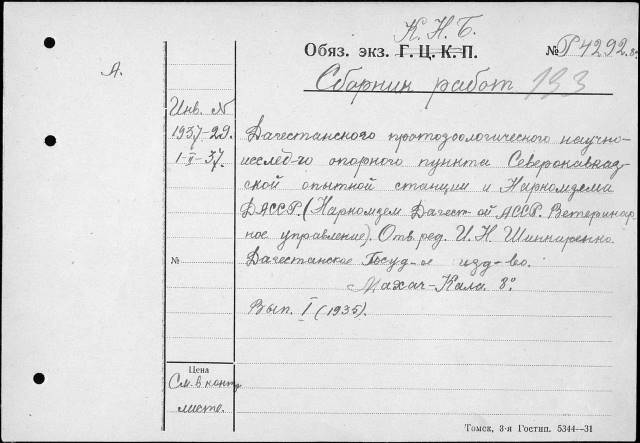 К. Н. Б.
Обяз. экз. Г. Ц. К. П. № Р 4292. 8°
А.
Сборник работ 193
Инв. №
1937-29.
1-II-37.
Дагестанского протозоологического научно-
исслед-го опорного пункта Северокавказ-
ской опытной станции и Наркомзема
ДАССР. (Наркомзем Дагест-ой АССР. Ветеринар-
ное управление). Отв. ред. И. Н. Шинкаренко.
№ Дагестанское Госуд-ое изд-во.
Махач-Кала. 8°.
Вып. I (1935).
Цена
См. в конт.
листе.
Томск, 3-я Гостип. 5344—31